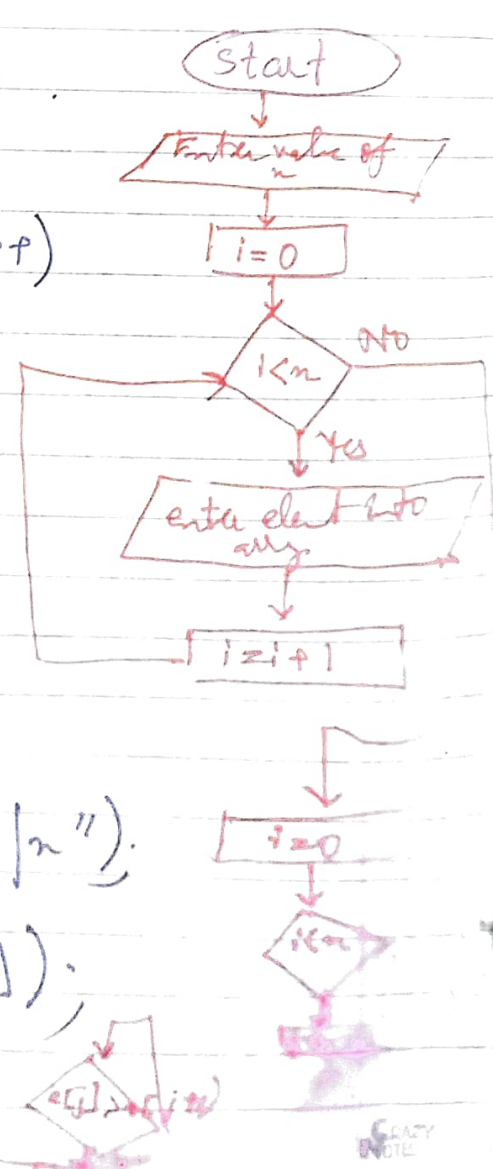 Start
Enter value of
n
+)
i=0
i<n
No
Yes
enter elent into
arry
i=i+1
\n");
i=0
i<n
]);
CRAZY
NOTE